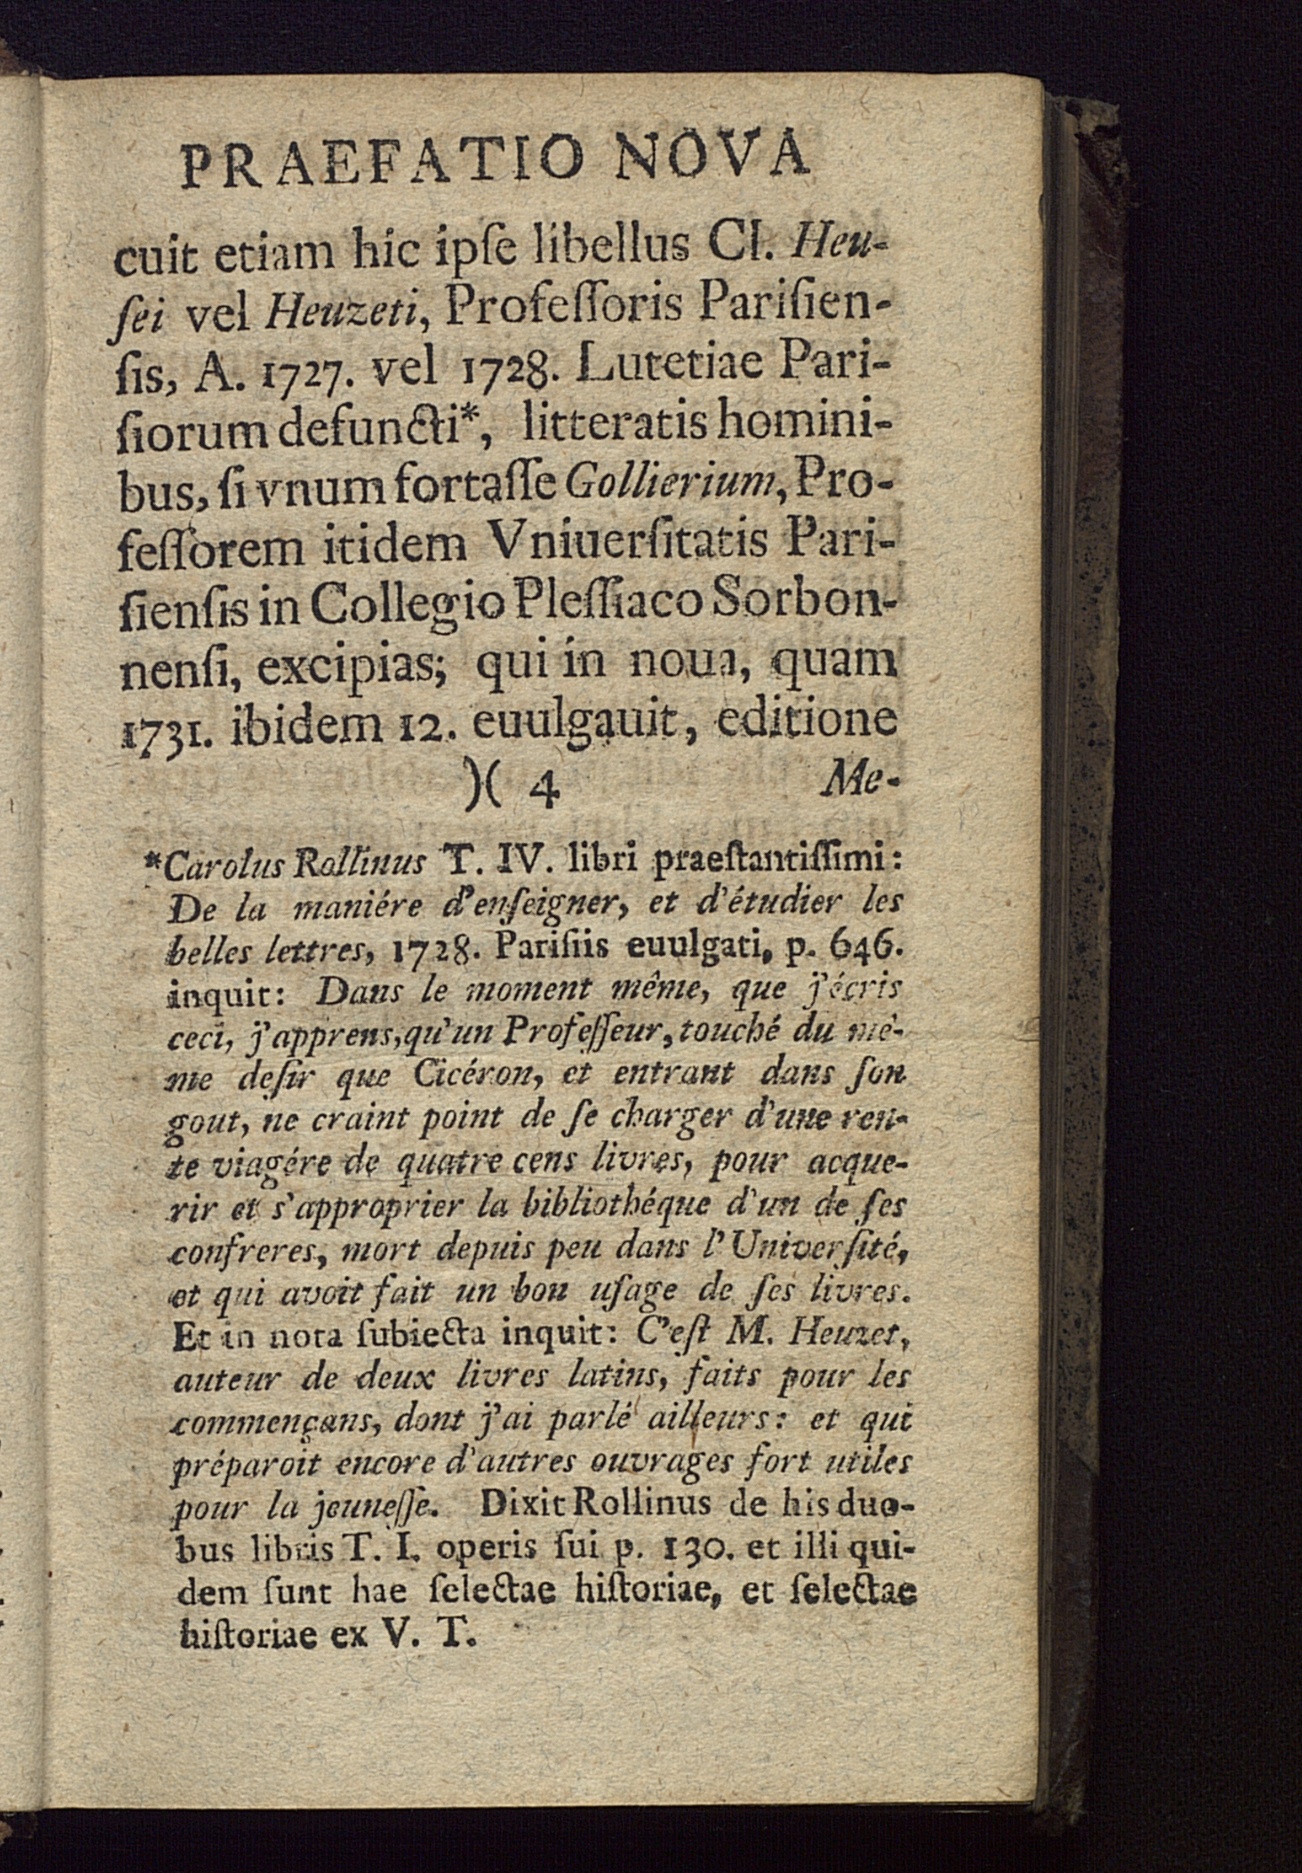 PRAEFATIO NOVA
cuit etiam hic ipſe libellus Cl. Heu-
ſei vel Heuzeti, Profeſſoris Pariſien-
ſis, A. 1727. vel 1728. Lutetiae Pari-
ſiorum defuncti*, litteratis homini-
bus, ſi vnum fortaſſe Gollierium, Pro-
feſſorem itidem Vniuerſitatis Pari-
ſienſis in Collegio Pleſſiaco Sorbon-
nenſi, excipias; qui in noua, quam
1731. ibidem 12. euulgauit, editione
)( 4 Me-
*Carolus Rollinus T. IV. libri praeſtantiſſimi:
De la maniére d'enſeigner, et d'étudier les
belles lettres, 1728. Pariſiis euulgati, p. 646.
inquit: Dans le moment même, que j'écris
ceci, j'apprens, qu'un Profeſſeur, touché du mê-
me deſir que Cicéron, et entrant dans ſon
gout, ne craint point de ſe charger d'une ren-
te viagére de quatre cens livres, pour acque-
rir et s'approprier la bibliothéque d'un de ſes
confreres, mort depuis peu dans l'Univerſité,
et qui avoit fait un bon uſage de ſes livres.
Et in nota ſubiecta inquit: C'eſt M. Heuzet,
auteur de deux livres latins, faits pour les
commençans, dont j'ai parlé ailleurs: et qui
préparoit encore d'autres ouvrages fort utiles
pour la jeuneſſe. Dixit Rollinus de his duo-
bus libris T. I. operis ſui p. 130. et illi qui-
dem ſunt hae ſelectae hiſtoriae, et ſelectae
hiſtoriae ex V. T.